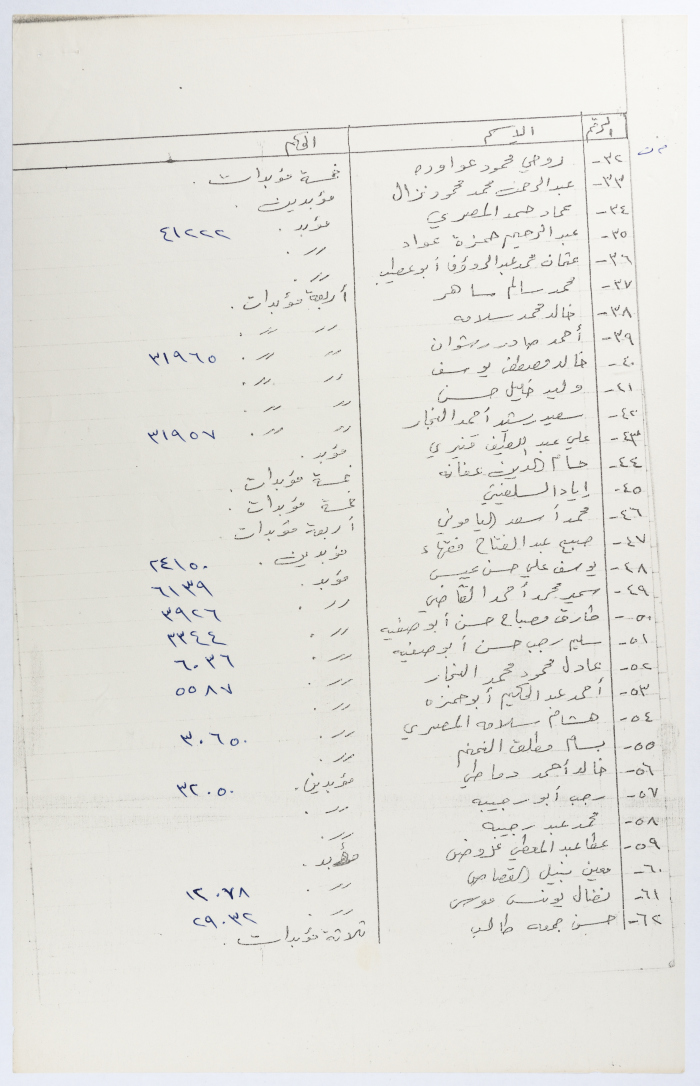 الرقم الإسم الحكم
٣٢- روحي محمود عواوده خمسة مؤبدات .
٣٣- عبدالرحمن محمد محمود نزال مؤبدين .
٣٤- عماد حمد المصري مؤبد . ٤١٢٢٢
٣٥- عبدالرحيم حمزة عواد // .
٣٦- عثمان محمد عبدالرؤوف أبوعطيه // .
٣٧- محمد سالم ساهر أربعة مؤبدات .
٣٨- خالد محمد سلامه // // .
٣٩- أحمد صادر رشوان // // . ٣١٩٦٥
٤٠- خالد مصطفى يوسف // // .
٤١- وليد خليل حسن // // .
٤٢- سعيد رشيد أحمد النجار // // . ٣١٩٥٧
٤٣- علي عبد اللطيف مؤبد .
٤٤- حسام الدين عفانه خمسة مؤبدات .
٤٥- إياد السلفيتي خمسة مؤبدات .
٤٦- محمد أسعد الياموني أربعة مؤبدات .
٤٧- صبيح عبد الفتاح فقهاء مؤبدين . ٢٤١٥٠
٤٨- يوسف علي حسن عيسى مؤبد . ٦١٣٩
٤٩- سمير محمد أحمد القاضي // . ٣٩٢٦
٥٠- طارق مصباح حسن أبو صفيه // . ٣٣٤٤
٥١- سليم رجب حسن أبوصفيه // . ٦٠٣٦
٥٢- عادل محمود محمد النجار // . ٥٥٨٧
٥٣- أحمد عبد الحكيم أبوحمزه // .
٥٤- هشام سلامه المصري // . ٣٠٦٥٠
٥٥- بسام مطلق // .
٥٦- خالد أحمد دماطي مؤبدين . ٣٢٠٥٠
٥٧- رجب أبو رجيبه // .
٥٨- محمد عبد رجيبه // .
٥٩- عطا عبد المعطي عروض مؤبد .
٦٠- معين نبيل القصاص // . ١٢٠٧٨
٦١- نضال يونس موسى // . ٢٩٠٣٢
٦٢- حسن جمعه طالب ثلاثة مؤبدات .